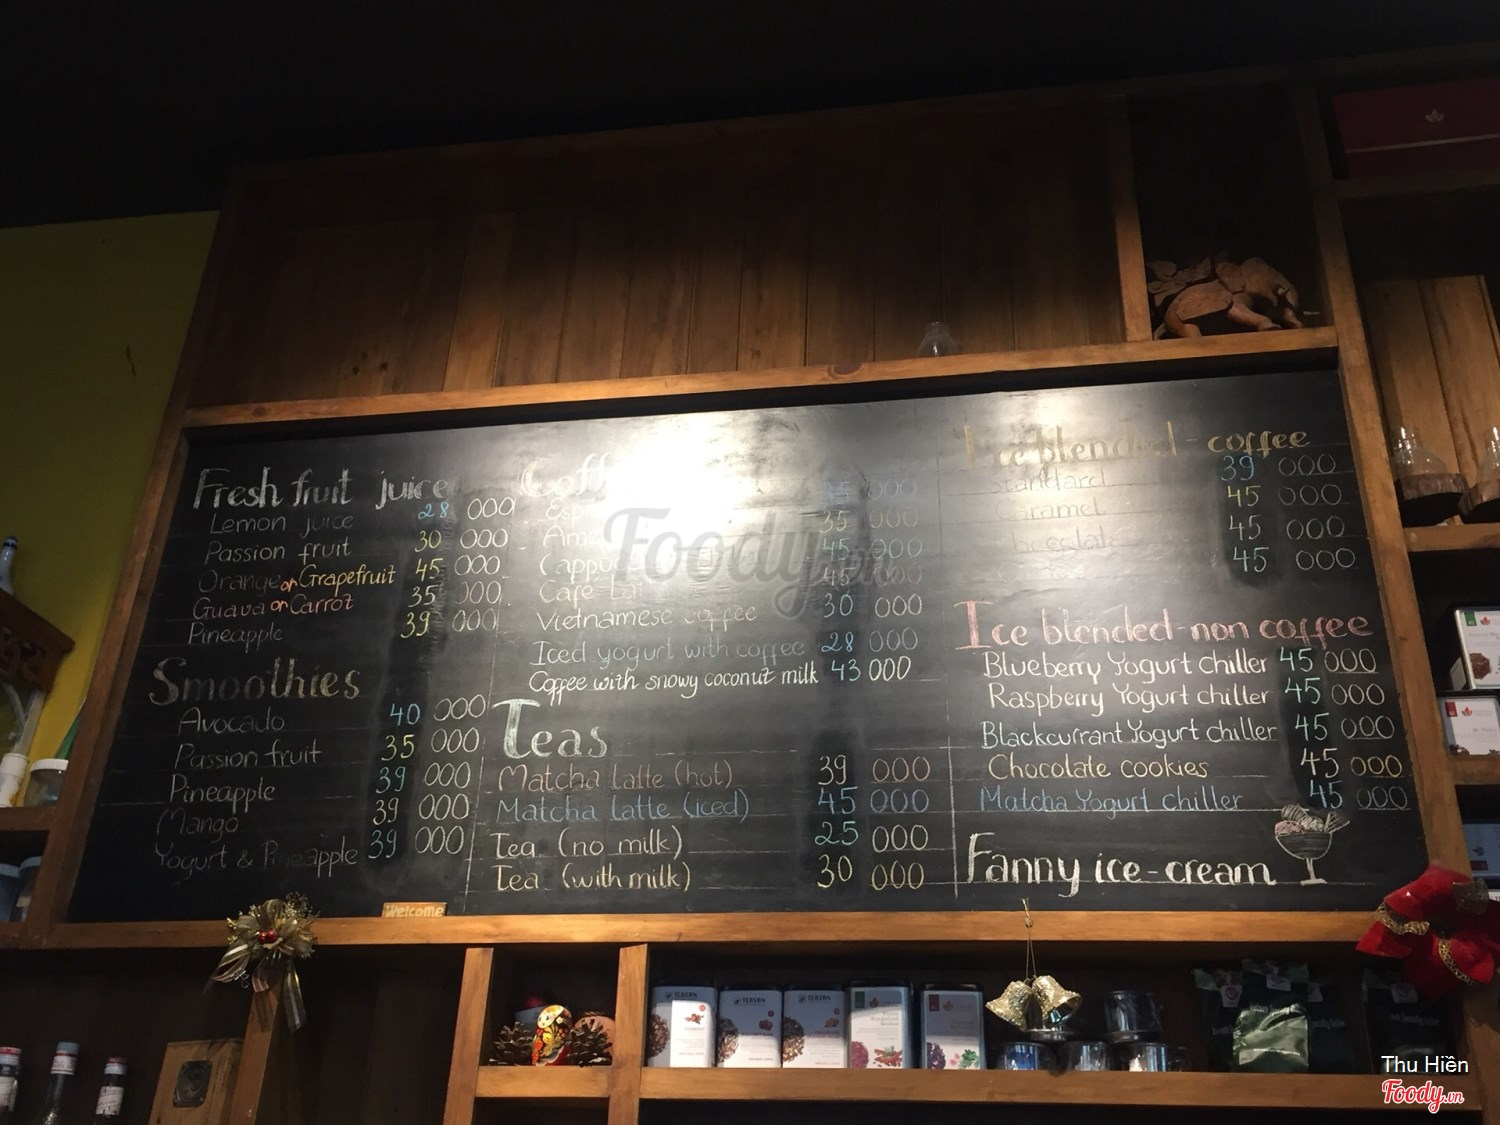 Fresh fruit juice
Lemon juice 28 000
Passion fruit 30 000
Orange or Grapefruit 45 000
Guava or Carrot 35 000
Pineapple 39 000
Smoothies
Avocado 40 000
Passion fruit 35 000
Pineapple 39 000
Mango 39 000
Yogurt & Pineapple 39 000
35 000
35 000
45 000
45 000
Vietnamese coffee 30 000
Iced yogurt with coffee 28 000
Coffee with snowy coconut milk 43 000
Teas
Matcha latte (hot) 39 000
Matcha latte (iced) 45 000
Tea (no milk) 25 000
Tea (with milk) 30 000
Ice blended - coffee
Standard 39 000
Caramel 45 000
Chocolate 45 000
45 000
Ice blended-non coffee
Blueberry Yogurt chiller 45 000
Raspberry Yogurt chiller 45 000
Blackcurrant Yogurt chiller 45 000
Chocolate cookies 45 000
Matcha Yogurt chiller 45 000
Fanny ice-cream
Welcome
Foody.vn
Thu Hiền
Foody.vn